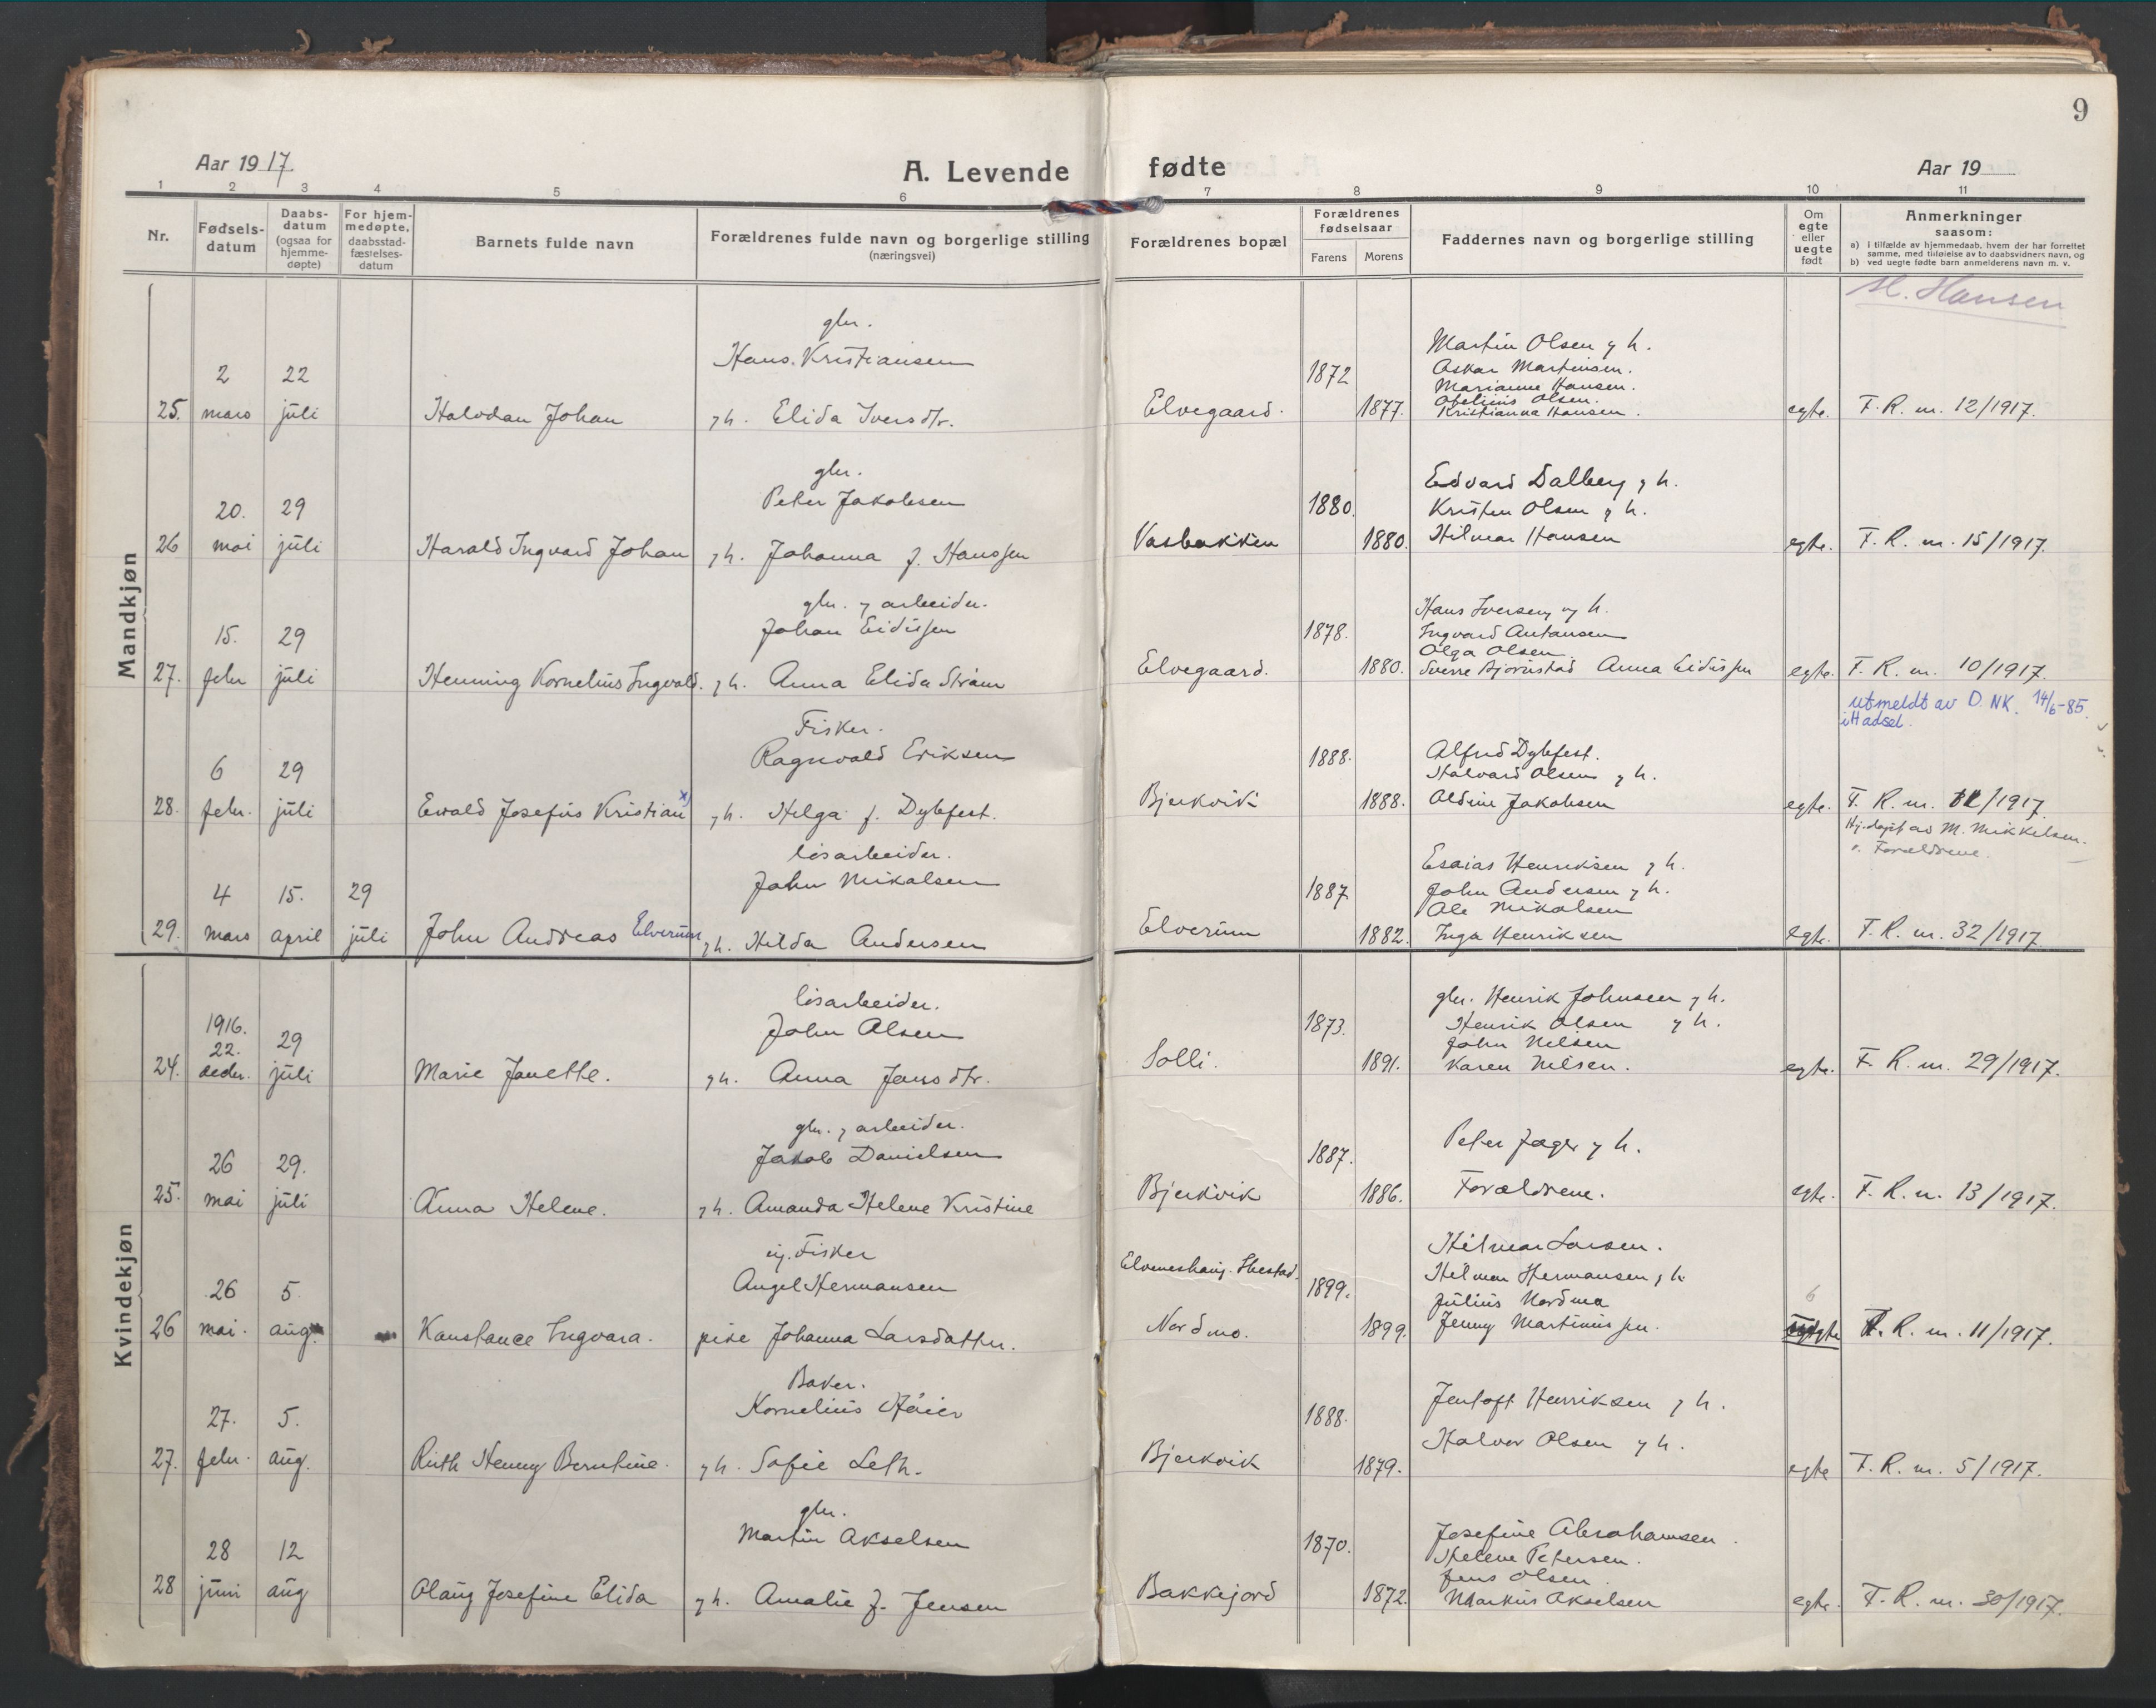 9
Aar 1917.
A. Levende fødte
Aar 19
1 2 3 4 5 6 7 8 9 10 11
Nr.
Fødsels-
datum
Daabs-
datum
(ogsaa for
hjemme-
døpte)
For hjem-
medøpte,
daabsstad-
fæstelses-
datum
Barnets fulde navn
Forældrenes fulde navn og borgerlige stilling
(næringsvei)
Forældrenes bopæl
Forældrenes
fødselsaar
Farens
Morens
Faddernes navn og borgerlige stilling
Om
egte
eller
uegte
født
Anmerkninger
saasom:
a) i tilfælde av hjemmedaab, hvem der har forrettet
samme, med tilføielse av to daabsvidners navn, og
b) ved uegte fødte barn anmelderens navn m. v.
H. Hansen
Mandkjøn
25. 2 mars 22 juli
Halvdan Johan
gbr.
Hans Kristiansen
g h. Elida Iversdtr.
Elvegaard.
1872 1877.
Martin Olsen g h.
Oskar Martinsen.
Marianne Hansen.
Obelinis Olsen.
Kristianna Hansen.
egte. F. R. nr. 12/1917.
26 20. mai 29 juli
Harald Ingvard Johan
gbr.
Peter Jakobsen
g h. Johanna f. Hanssen
Vasbakken
1880. 1880.
Edvard Dalberg g h.
Kristen Olsen g h.
Hilmar Hansen
egte. F. R. nr. 15/1917.
27. 15. febr 29 juli
Henning Kornelius Ingvald.
gbr. g arbeider.
Johan Eidissen
g h. Anna Elida Strøm
Elvegaard.
1878. 1880.
Hans Iversen og h.
Ingvard Antonsen
Olga Olsen
Sverre Bjørnstad Anna Eidissen
egte. F. R. nr. 10/1917.
utmeldt av D. NK. 14/6-85.
i Hadsel.
28. 6 febr. 29 juli
Ewald Josefus Kristian x)
Fisker.
Ragnvald Eriksen
g h. Helga f. Dybfest.
Bjerkvik
1888. 1888.
Alfred Dybfest.
Halvard Olsen g h.
Aldine Jakobsen
egte. F. R. nr. /1917.
Hj. døpt av M. Mikkelsen.
v. Forældrene.
29. 4 mars 15. april 29 juli
John Andreas Elverum
løsarbeider.
John Mikalsen
g h. Hilda Andersen
Elverum
1887 1882.
Esaias Henriksen g h.
John Andersen g h.
Ole Mikalsen
Inga Henriksen
egte. F. R. nr. 32/1917.
Kvindekjøn
24. 1916. 22. decbr. 29 juli
Marie Janette.
løsarbeider.
John Olsen
g h. Anna Jensdtr.
Solli.
1873. 1891.
gbr. Henrik Johnsen g h.
Henrik Olsen g h.
John Nilsen
Karen Nilsen.
egte. F. R. nr. 29/1917.
25. 26 mai 29. juli
Anna Helene.
gbr. g arbeider.
Jakob Danielsen
g h. Amanda Helene Kristine
Bjerkvik
1887. 1886.
Peter Jæger g h.
Forældrene.
egte. F. R. nr. 13/1917.
26 26 mai. 5. aug.
Konstance Ingvara.
ug. Fisker
Angel Hermansen
pike Johanna Larsdatter.
Nordmo.
1899. 1899.
Hilmar Larsen.
Hilmar Hermansen g h.
Julius Nordmo
Jenny Martinussen.
6
F. R. nr. 11/1917.
27. 27. febr. 5. aug.
Ruth Henny Berntine.
Baker.
Kornelius Høier
g h. Sofie Leth.
Bjerkvik
1888. 1879.
Jentoft Henriksen g h.
Halvor Olsen g h.
egte F. R. nr. 5/1917.
28 28 juni 12 aug
Olaug Josefine Elida
gbr.
Martin Akselsen
g h. Amalie f. Jensen
Bakkejord
1870. 1872.
Josefine Abrahamsen.
Helene Petersen.
Jens Olsen
Markus Akselsen
egte. F. R. nr. 30/1917.